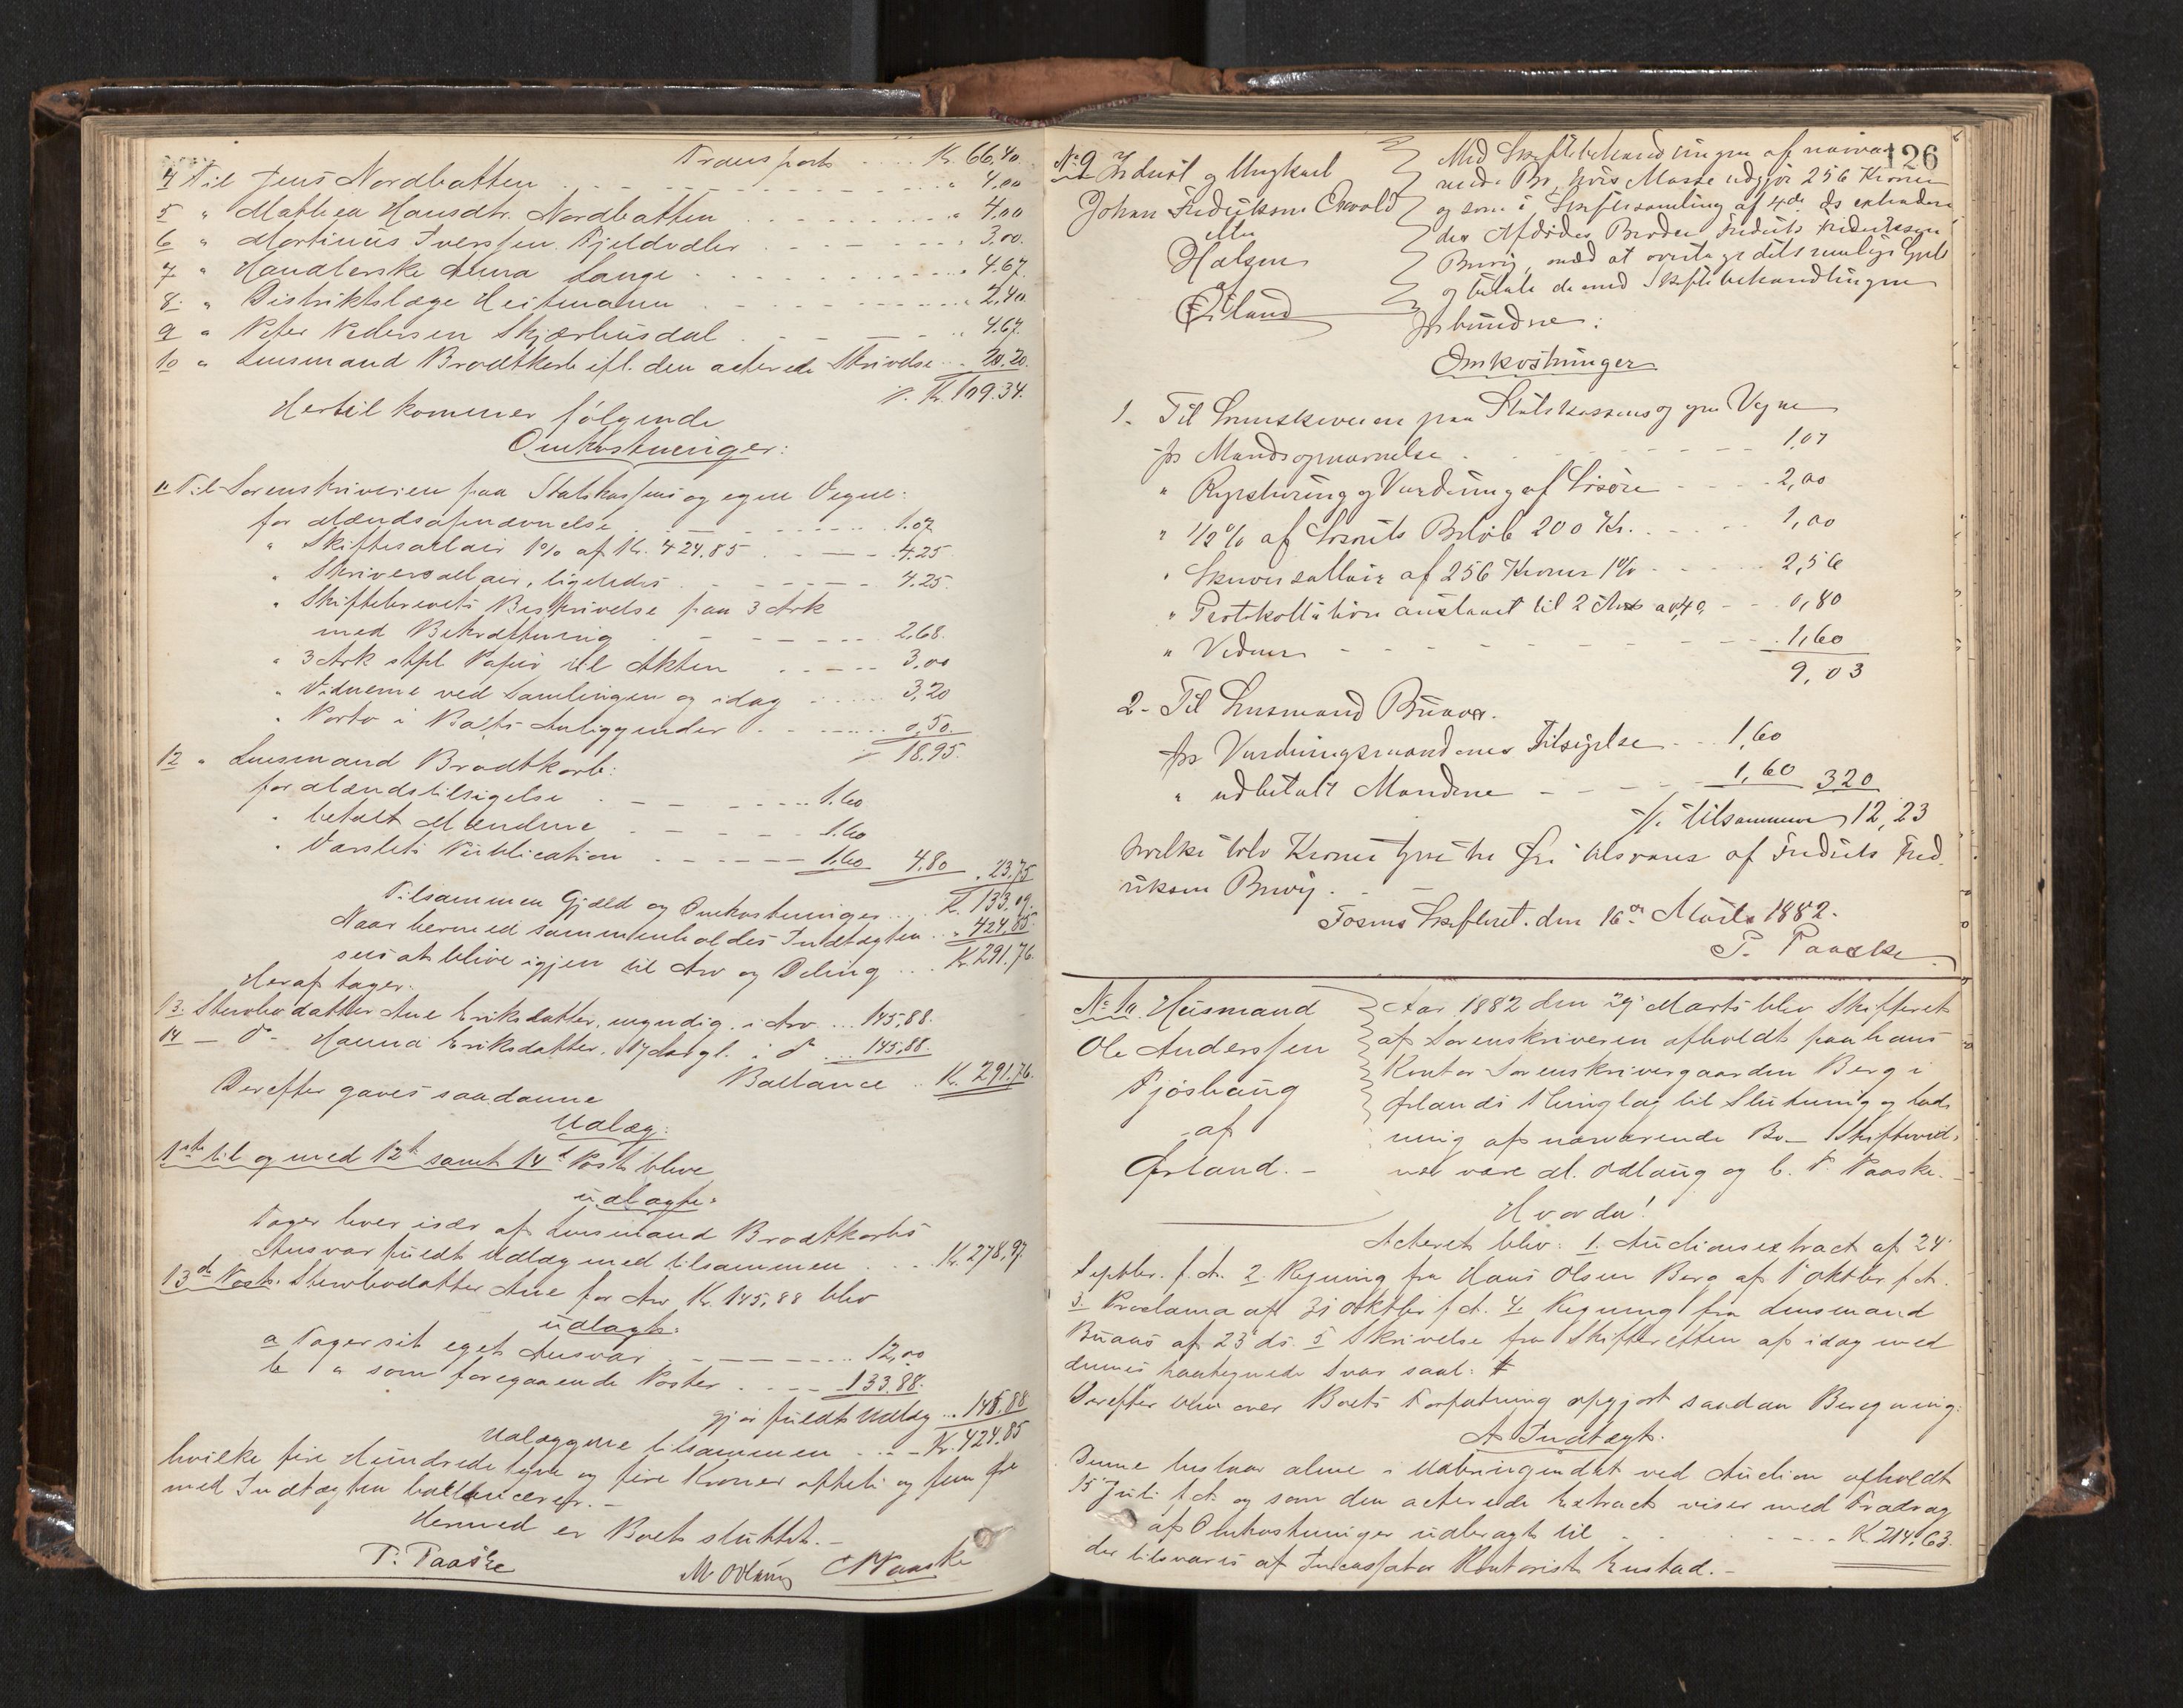 Transport .... Kr. 66,40.
4 Til Jens Nordbotten . . . " 4.00
5 " Mathea Hansdtr. Nordbotten . . . " 4.00
6 " Mortinus Iverssen Fjeldvær . . . " 3.00.
7 " Handlerske Anna Lange . . . " 4.67.
8. " Distriktslæge Heitmann . . . " 2.40.
9 " Peter Pedersen Skjærhusdal . . . " 4.67.
10 " Lensmand Brodtkorb ifl. den acterede Skrivelse .. 20.20.
Kr. 109.34.
Hertil kommer følgende
Omkostninger:
11 Til Sorenskriveren paa Statskassens og egne Vegne:
for Mændsopnævnelse . . . 1.07
" Skiftesallair 1% af Kr. 424.85 . . . 4.25
" Skriversallair, ligeledes . . . 4.25.
" Skiftebrevets Beskrivelse paa 3 Ark
med Bekræftning . . . 2.68.
" 3 Ark stpl. Papir til Akten . . . 3,00
" Vidnerne ved Samlingen og idag . . . 3,20
" Porto i Boets Anliggender . . . 0,50.
18.95.
12 " Lensmand Brodtkorb:
for Mændstilsigelse . . . 1.60
" betalt Mændene . . . 1.60
" Varslets Publication . . . 1.60 4.80 " 23,75
Tilsammen Gjæld og Omkostninger ... Kr. 133.09.
Naar hermed sammenholdes Indtægten .. " 424.85
sees at blive igjen til Arv og Deling ... Kr. 291.76.
Heraf tager:
13. Stervbodatter Ane Eriksdatter, myndig, i Arv ... 145,88.
14 — do — Hanna Eriksdatter, 17 Aar gl. i do ... 145,88.
Ballance .. Kr. 291.76.
Derefter gaves saadanne
Udlæg:
1ste til og med 12te samt 14de Post bleve
udlagte:
Tager hver især af Lensmand Brodtkorbs
Ansvar fuldt Udlæg med tilsammen . . . Kr. 278.97.
13de Post. Stervbodatter Ane for Arv Kr. 145,88 blev
udlagt:
a Tager sit eget Ansvar . . . 12,00
b " som foregaaende Poster . . . 133.88.
gjør fuldt Udlæg ... 145.88
Udlæggene tilsammen . . . Kr. 424.85
hvilke fire Hundrede tyve og fire Kroner otteti og fem Øre
med Indtægten ballancerer. —
Hermed er Boet sluttet. —
P. Paaske
M. Odlaug C Paaske
126
No 9 Inderst og Ungkarl
Johan Fredriksen Osvald
eller
Halsen
af
Ørland
Med Skiftebehandlingen af nærvæ
rende Bo, hvis Masse udgjør 256 Kroner
og som i Skiftesamling af 4de ds extraderet
den Afdødes Broder Fredrik Fredriksen
Brevig, mod at overtage dets mulige Gjæld
og betale de med Skiftebehandlingen
forbundne:
Omkostninger
1. Til Sorenskriveren paa Statskassens og egne Vegne
for Mandsopnævnelse . . . 1,07
" Registrering og Vurdering af Løsøre . . . 2,00
" 1/2% af Løsørets Beløb 200 Kr. . . . 1,00
" Skriversallair af 256 Kroner 1% . . . 2,56
" Protokollation anslaaet til 2 Ark a 0,40 . . . 0,80
" Vidner . . . 1,60
9,03
2. Til Lensmand Buaas.
for Vurderingsmændenes Tilsigelse . . 1,60
" udbetalt Mændene . . . 1,60 320
tilsammen 12,23
hvilke tolv Kroner tyve tre Øre tilsvares af Fredrik Fred
riksen Brevig.
Fosens Skifteret. den 16de Marts 1882.
P. Paaske
No 10. Husmand
Ole Anderssen
Fjøshaug
af
Ørland. —
Aar 1882 den 29 Marts blev Skifteret
af Sorenskriveren afholdt paa hans
Kontor Sorenskrivergaarden Berg i
Ørlands Thinglag til Slutning og lod
ning af nærværende Bo — Skiftevid
ner vare M. Odlaug og C. P. Paaske. —
Hvorda!
Acteret blev: 1. Auctionsextract af 24
Septbr. f. A. 2. Regning fra Hans Olsen Berg af 1 Oktbr f. A.
3. Proclama af 31 Oktbr f. A. 4. Regning fra Lensmand
Buaas af 23 ds. 5 Skrivelse fra Skifteretten af idag med
dennes paategnede Svar saal:
Derefter blev over Boets Forfatning opgjort saadan Beregning:
A Indtægt.
Denne bestaar alene i Udbringendet ved Auction afholdt
15 Juli f. A. og som den acterede Extract viser med Fradrag
af Omkostninger udbragt til . . . K. 214,63.
der tilsvares af Incassator Kontorist Enstad. —